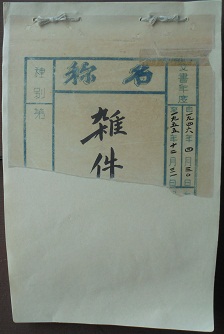 名称
文書年度
自一九四六年四月三〇
至一九五五年十二月三一
雑件
種別第